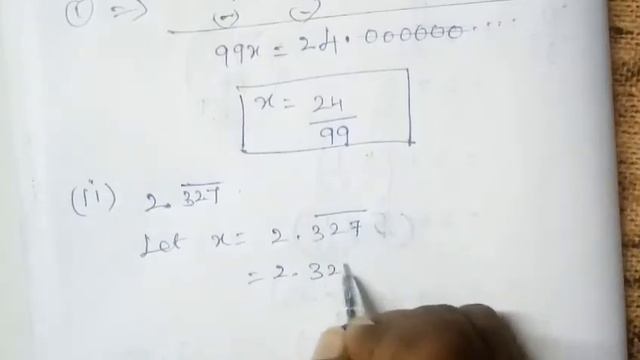 (i) => (-) (-)
99x = 24.000000....
x = 24/99
(ii) 2.3̅2̅7̅
Let x = 2.3̅2̅7̅
= 2.32